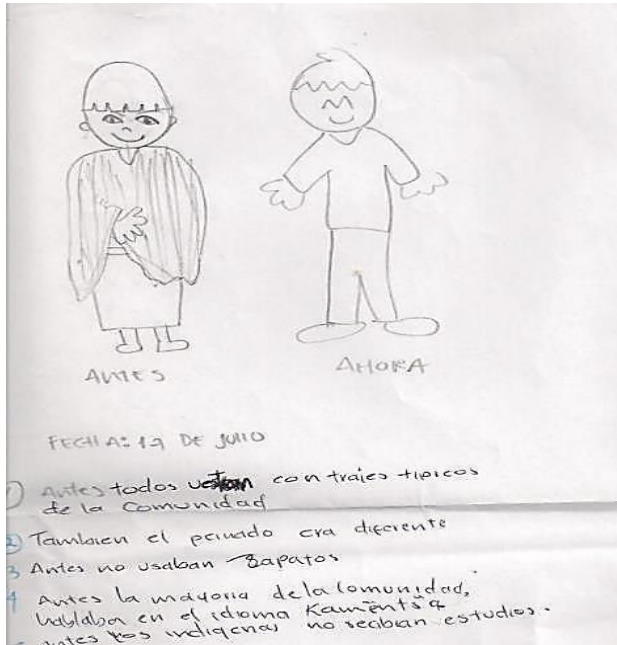 ANTES
AHORA
FECHA: 17 DE JULIO
1 Antes todos vestian con trajes tipicos
de la comunidad
2 Tambien el peinado era diferente
3 Antes no usaban zapatos
4 Antes la mayoria de la comunidad,
hablaba en el idioma Kamëntsá
antes los indigenas no recibian estudios.